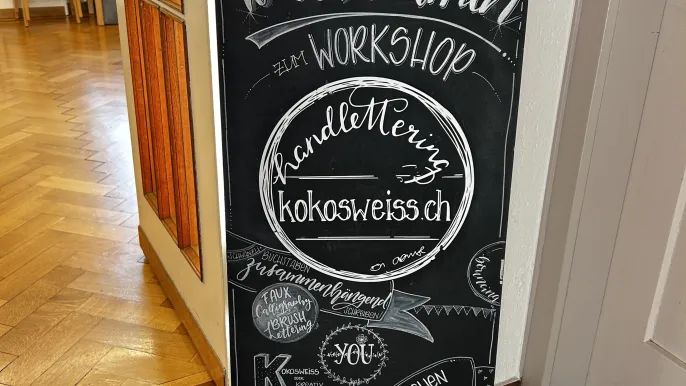 ZUM WORKSHOP
handlettering
kokosweiss.ch
BUCHSTABEN
zusammenhängend
SCHREIBEN
FAUX
Calligraphy
BRUSH
lettering
YOU
KOKOSWEISS
KREATIV